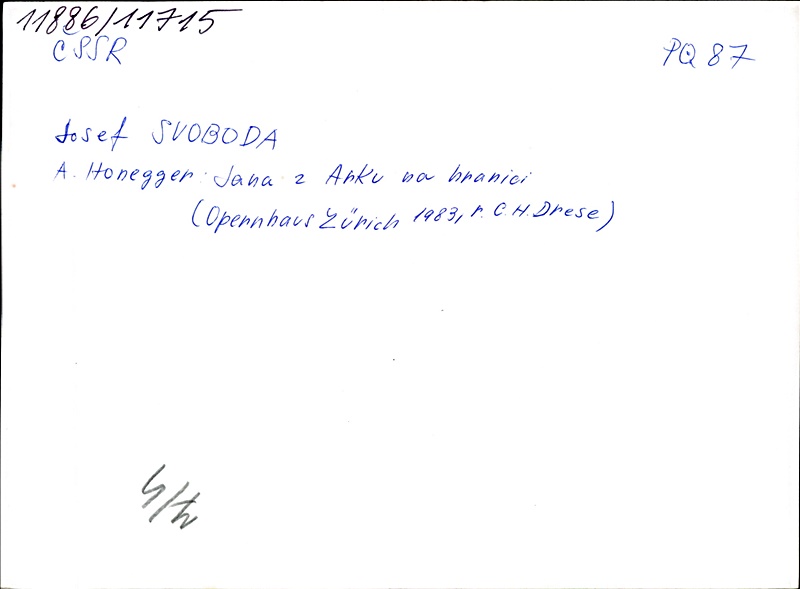 11886/11715
CSSR
PQ 87
Josef SVOBODA
A. Honegger: Jana z Arku na hranici
(Opernhaus Zürich 1983, r. C. H. Drese)